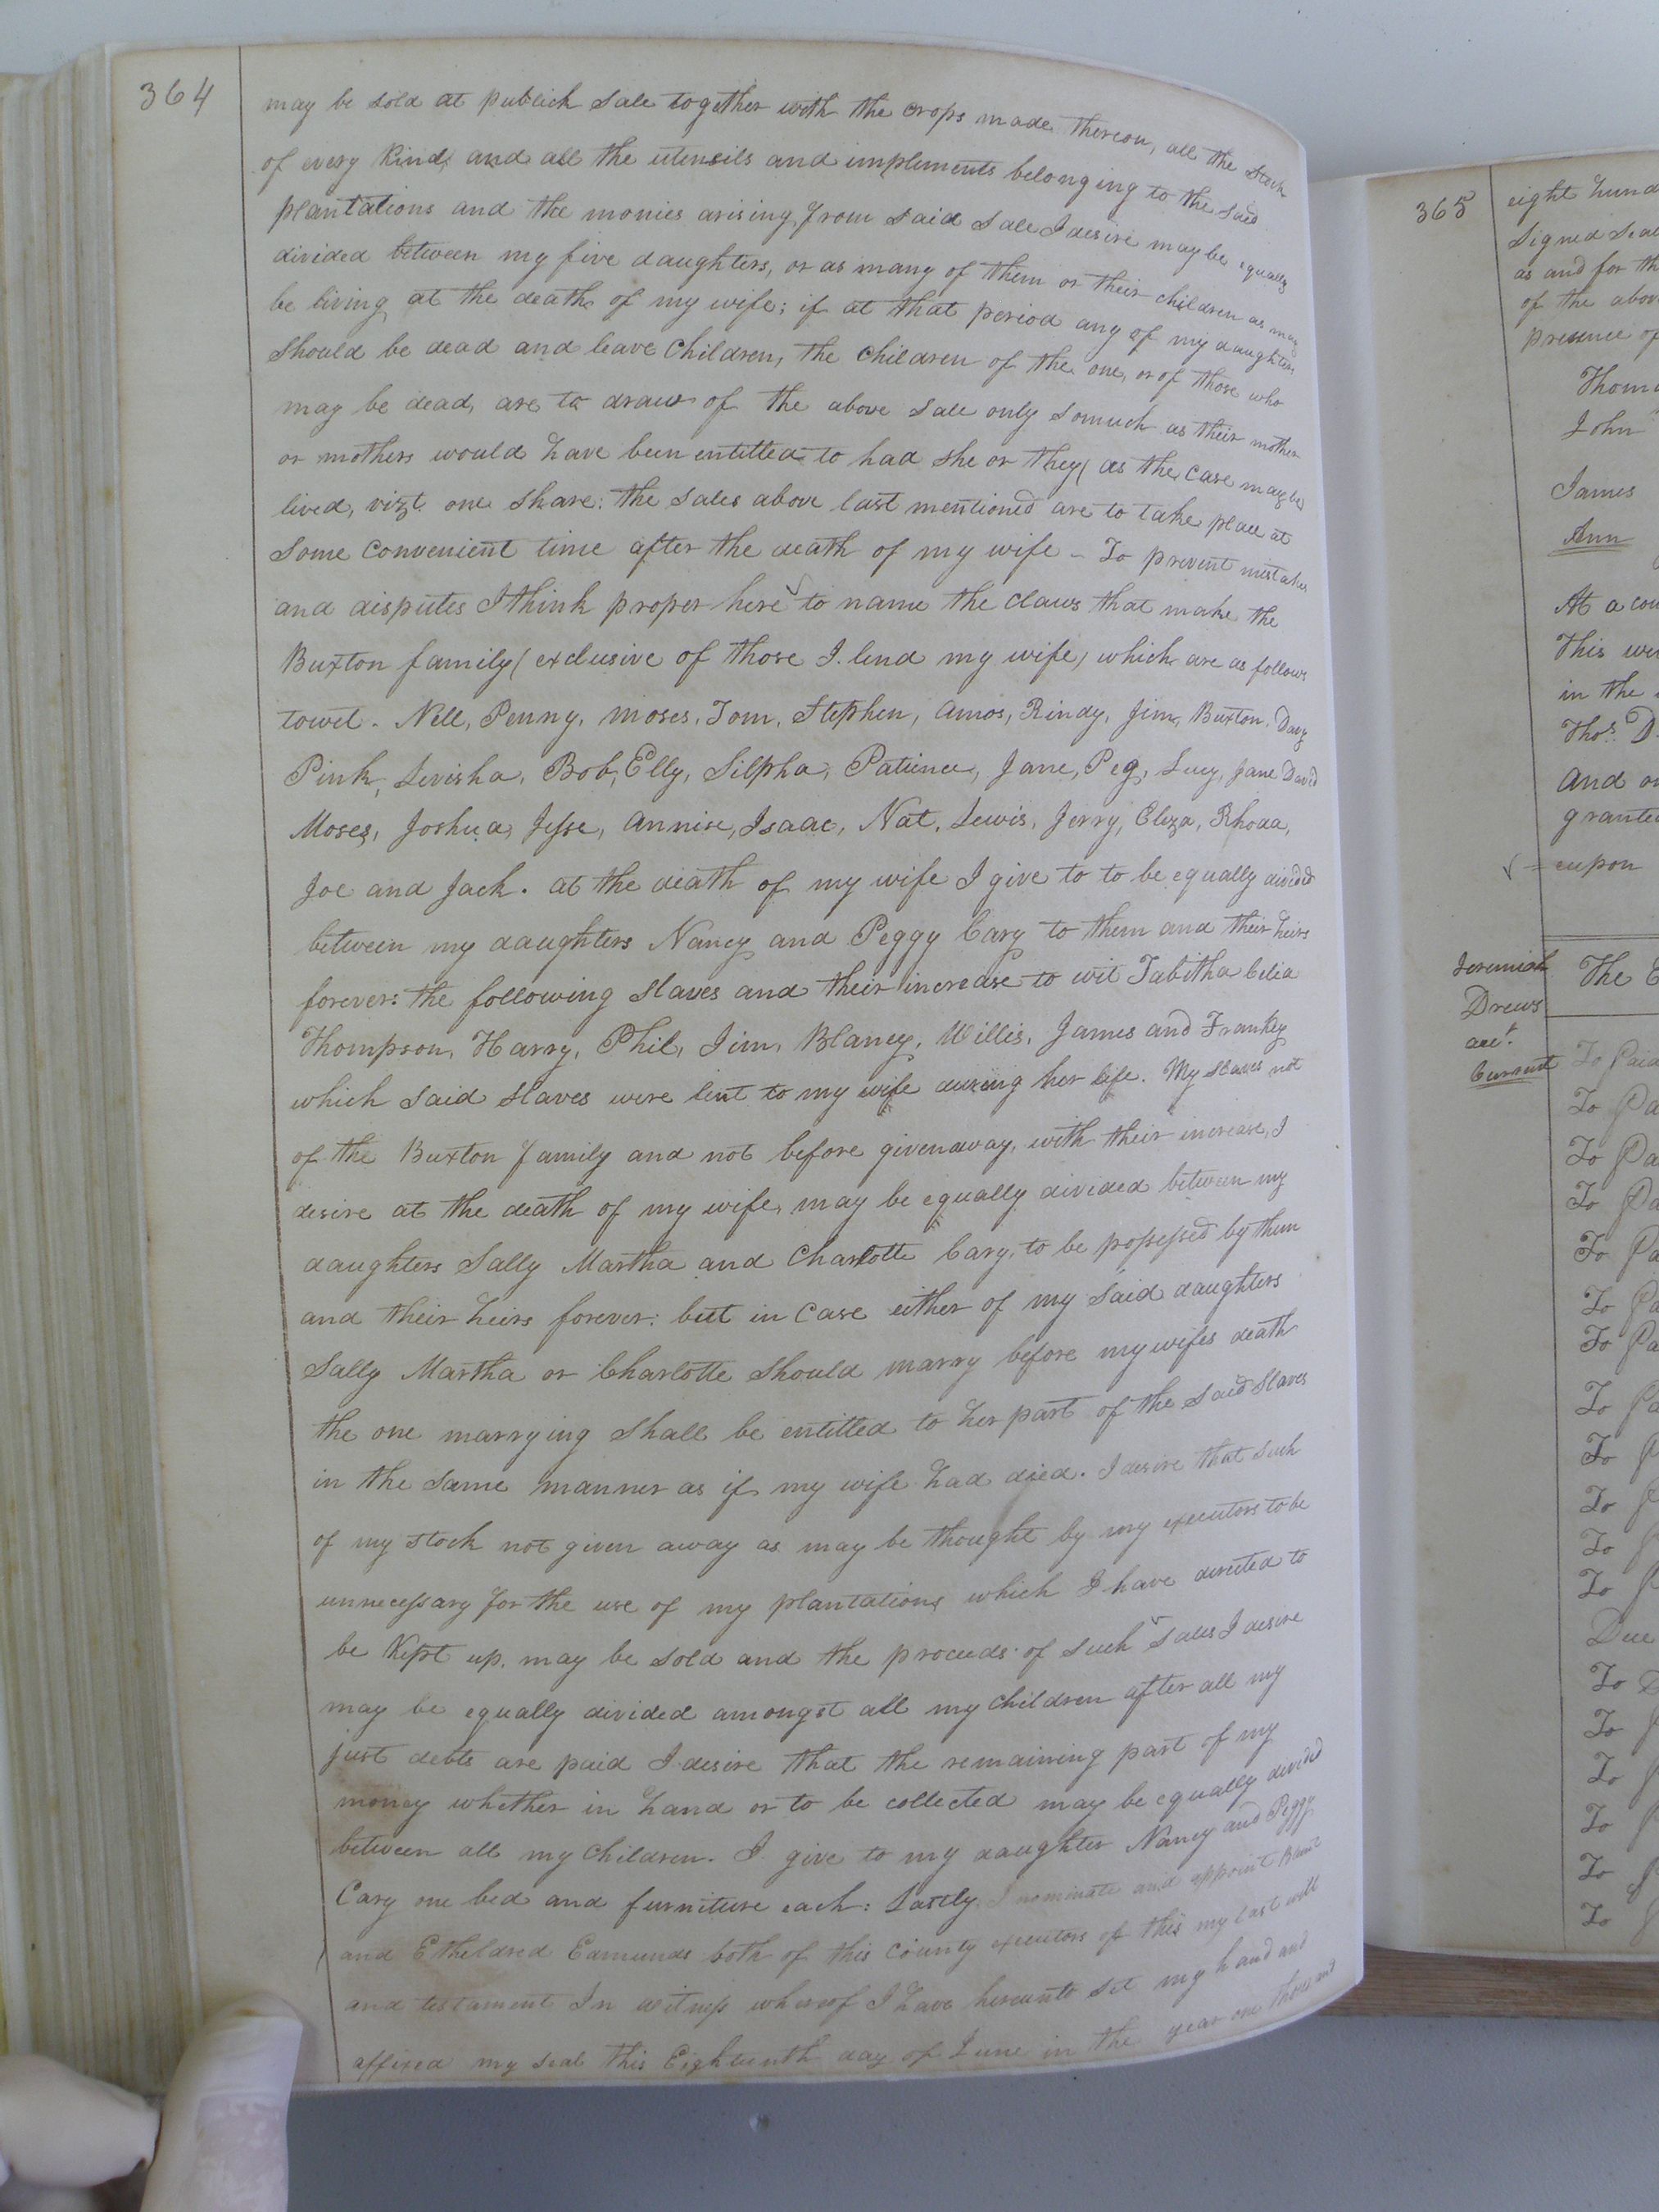 364
may be sold at publick sale together with the crops made thereon, all the stock
of every kind, and all the utensils and implements belonging to the said
plantations and the monies arising from said sale I desire may be equally
divided between my five daughters, or as many of them or their children as may
be living at the death of my wife; if at that period any of my daughters
should be dead and leave Children, the Children of the one, or of those who
may be dead, are to draw of the above sale only so much as their mother
or mothers would have been entitled to had she or they (as the case may be)
lived, vizt. one share: the sales above last mentioned are to take place at
some convenient time after the death of my wife - To prevent mistakes
and disputes I think proper here to name the claws that make the
Buxton family (exclusive of those I lend my wife) which are as follows
towit. Nell, Penny, Moses, Tom, Stephen, Amos, Rindy, Jim, Buxton, Davy
Pink, Levisha, Bob, Elly, Silpha, Patience, Jane, Peg, Lucy, Jane David
Moses, Joshua, Jesse, Annise, Isaac, Nat, Lewis, Jerry, Eliza, Rhoda,
Joe and Jack. at the death of my wife I give to to be equally divided
between my daughters Nancy and Peggy Cary to them and their heirs
forever: the following slaves and their increase to wit Tabitha Celia
Thompson, Harry, Phil, Jim, Blaney, Willis, James and Frankey
which said slaves were lent to my wife during her life. My slaves not
of the Buxton family and not before given away, with their increase, I
desire at the death of my wife, may be equally divided between my
daughters Sally Martha and Charlotte Cary, to be possessed by them
and their heirs forever: but in case either of my said daughters
Sally Martha or Charlotte should marry before my wifes death
the one marrying shall be entitled to her part of the said slaves
in the same manner as if my wife had died. I desire that such
of my stock not given away as may be thought by my executors to be
unnecessary for the use of my plantations which I have directed to
be Kept up, may be sold and the proceeds of such sales I desire
may be equally divided amongst all my children after all my
just debts are paid I desire that the remaining part of my
money whether in hand or to be collected may be equally divided
between all my children. I give to my daughter Nancy and Peggy
Cary one bed and furniture each: Lastly I nominate and appoint
and Etheldred Edmunds both of this County executors of this my last will
and testament In witness whereof I have hereunto set my hand and
affixed my seal this Eighteenth day of June in the year one thousand
365
eight hund
Signed Seal
as and for th
of the abov
presence of
Thom
John
James
Ann
At a cou
This wi
in the
Thos. D
And o
grante
eupon
Jeremiah
Drews
acct.
Current
The E
To Paid
To Pa
To Pa
To Pa
To Pa
To Pa
To Pa
To Pa
To P
To P
To P
To P
Due
To
To P
To P
To P
To P
To P